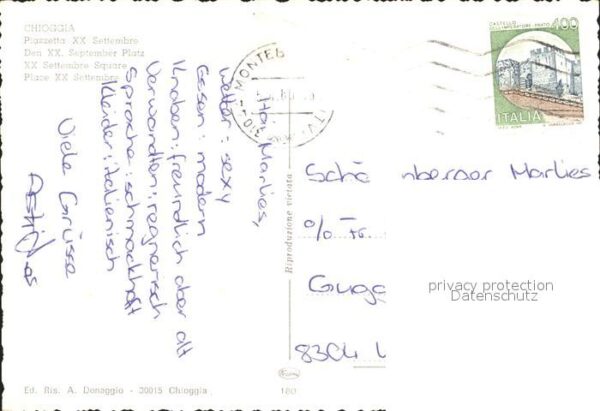 CHIOGGIA
Piazzetta XX Settembre
Den XX. September Platz
XX Settembre Square
Place XX Settembre
Hoi Marlies,
Wetter: sexy
Essen: modern
Knaben: freundlich aber alt
Verwandten: regnerisch
Sprache: schmackhaft
Kleider: italienisch
Viele Grüsse
Ed. Ris. A. Donaggio - 30015 Chioggia
Riproduzione vietata
180
MONTEB
CASTELLO
DELL'IMPERATORE PRATO
400
ITALIA
Schö nberger Marlies
c/o Fr.
Guga
8304 W
privacy protection
Datenschutz